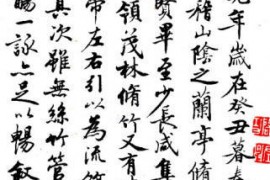 九年歲在癸丑暮春
稽山陰之蘭亭脩
賢畢至少長咸集
領茂林脩竹又有
帶左右引以為流觴
其次雖無絲竹管
觴一詠亦足以暢敘